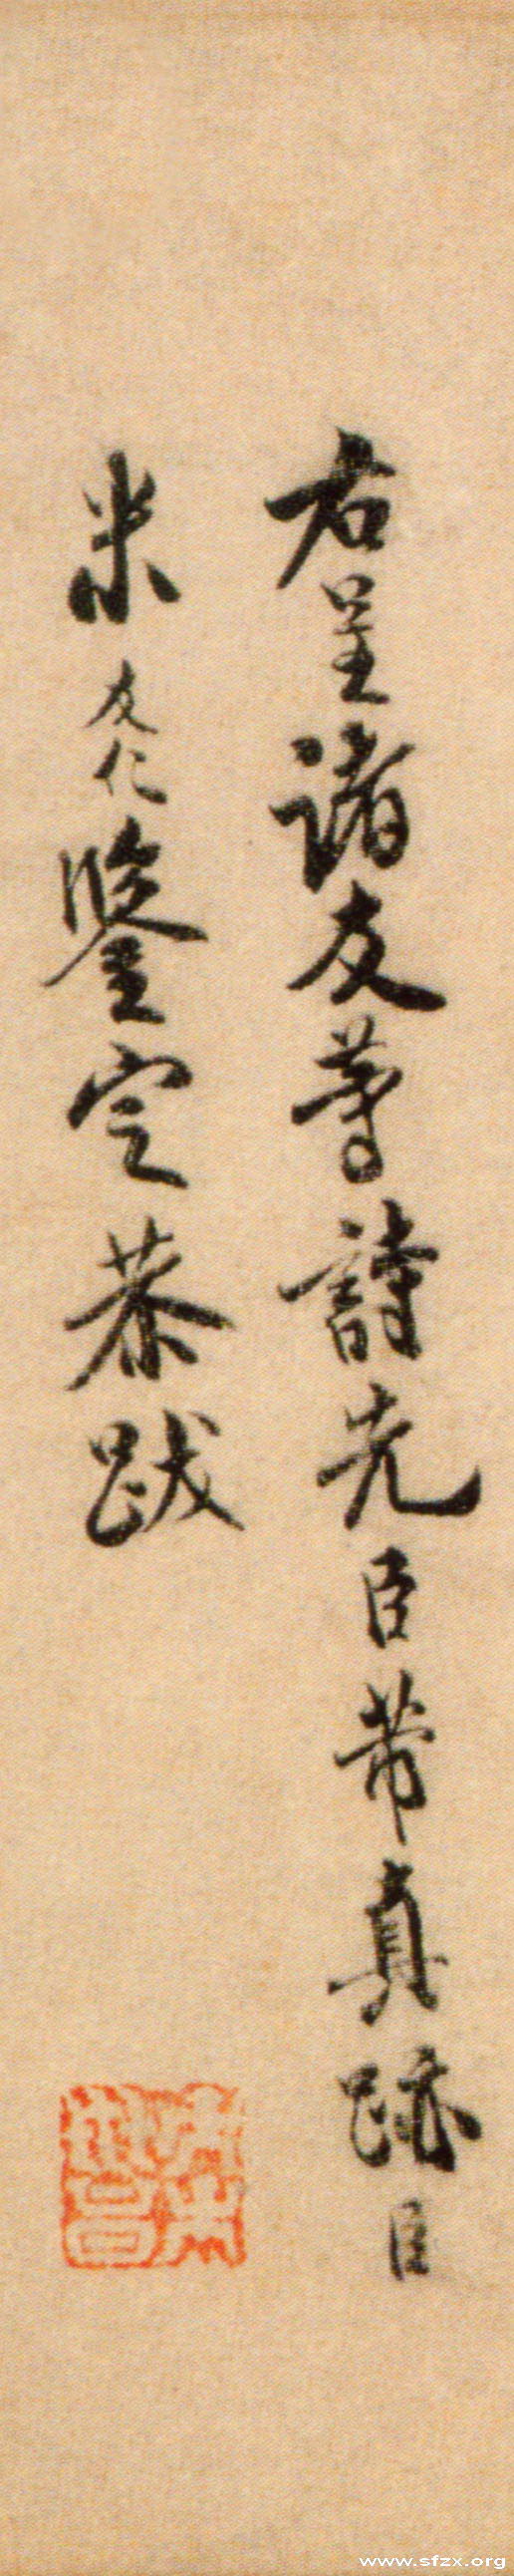 右呈諸友等詩先臣芾真跡臣
米友仁鑒定恭跋
www.sfzx.org